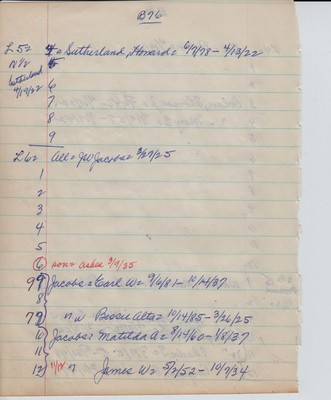 B76
L52 4 = Sutherland, Howard = 6/7/78 - 4/13/22
N 1/2 5
Sutherland 6
4/17/22
7
8
9
L62 All = JW Jacobs = 3/27/25
1
2
3
4
5
6 son = ashes 9/9/35
9 Jacobs = Earl W = 9/6/81 - 10/24/37
8
79 " W Bessie Alta = 10/14/85 - 3/26/25
10 Jacobs = Matilda A = 8/14/60 - 1/8/37
11
12 " James W = 5/2/52 - 10/7/34